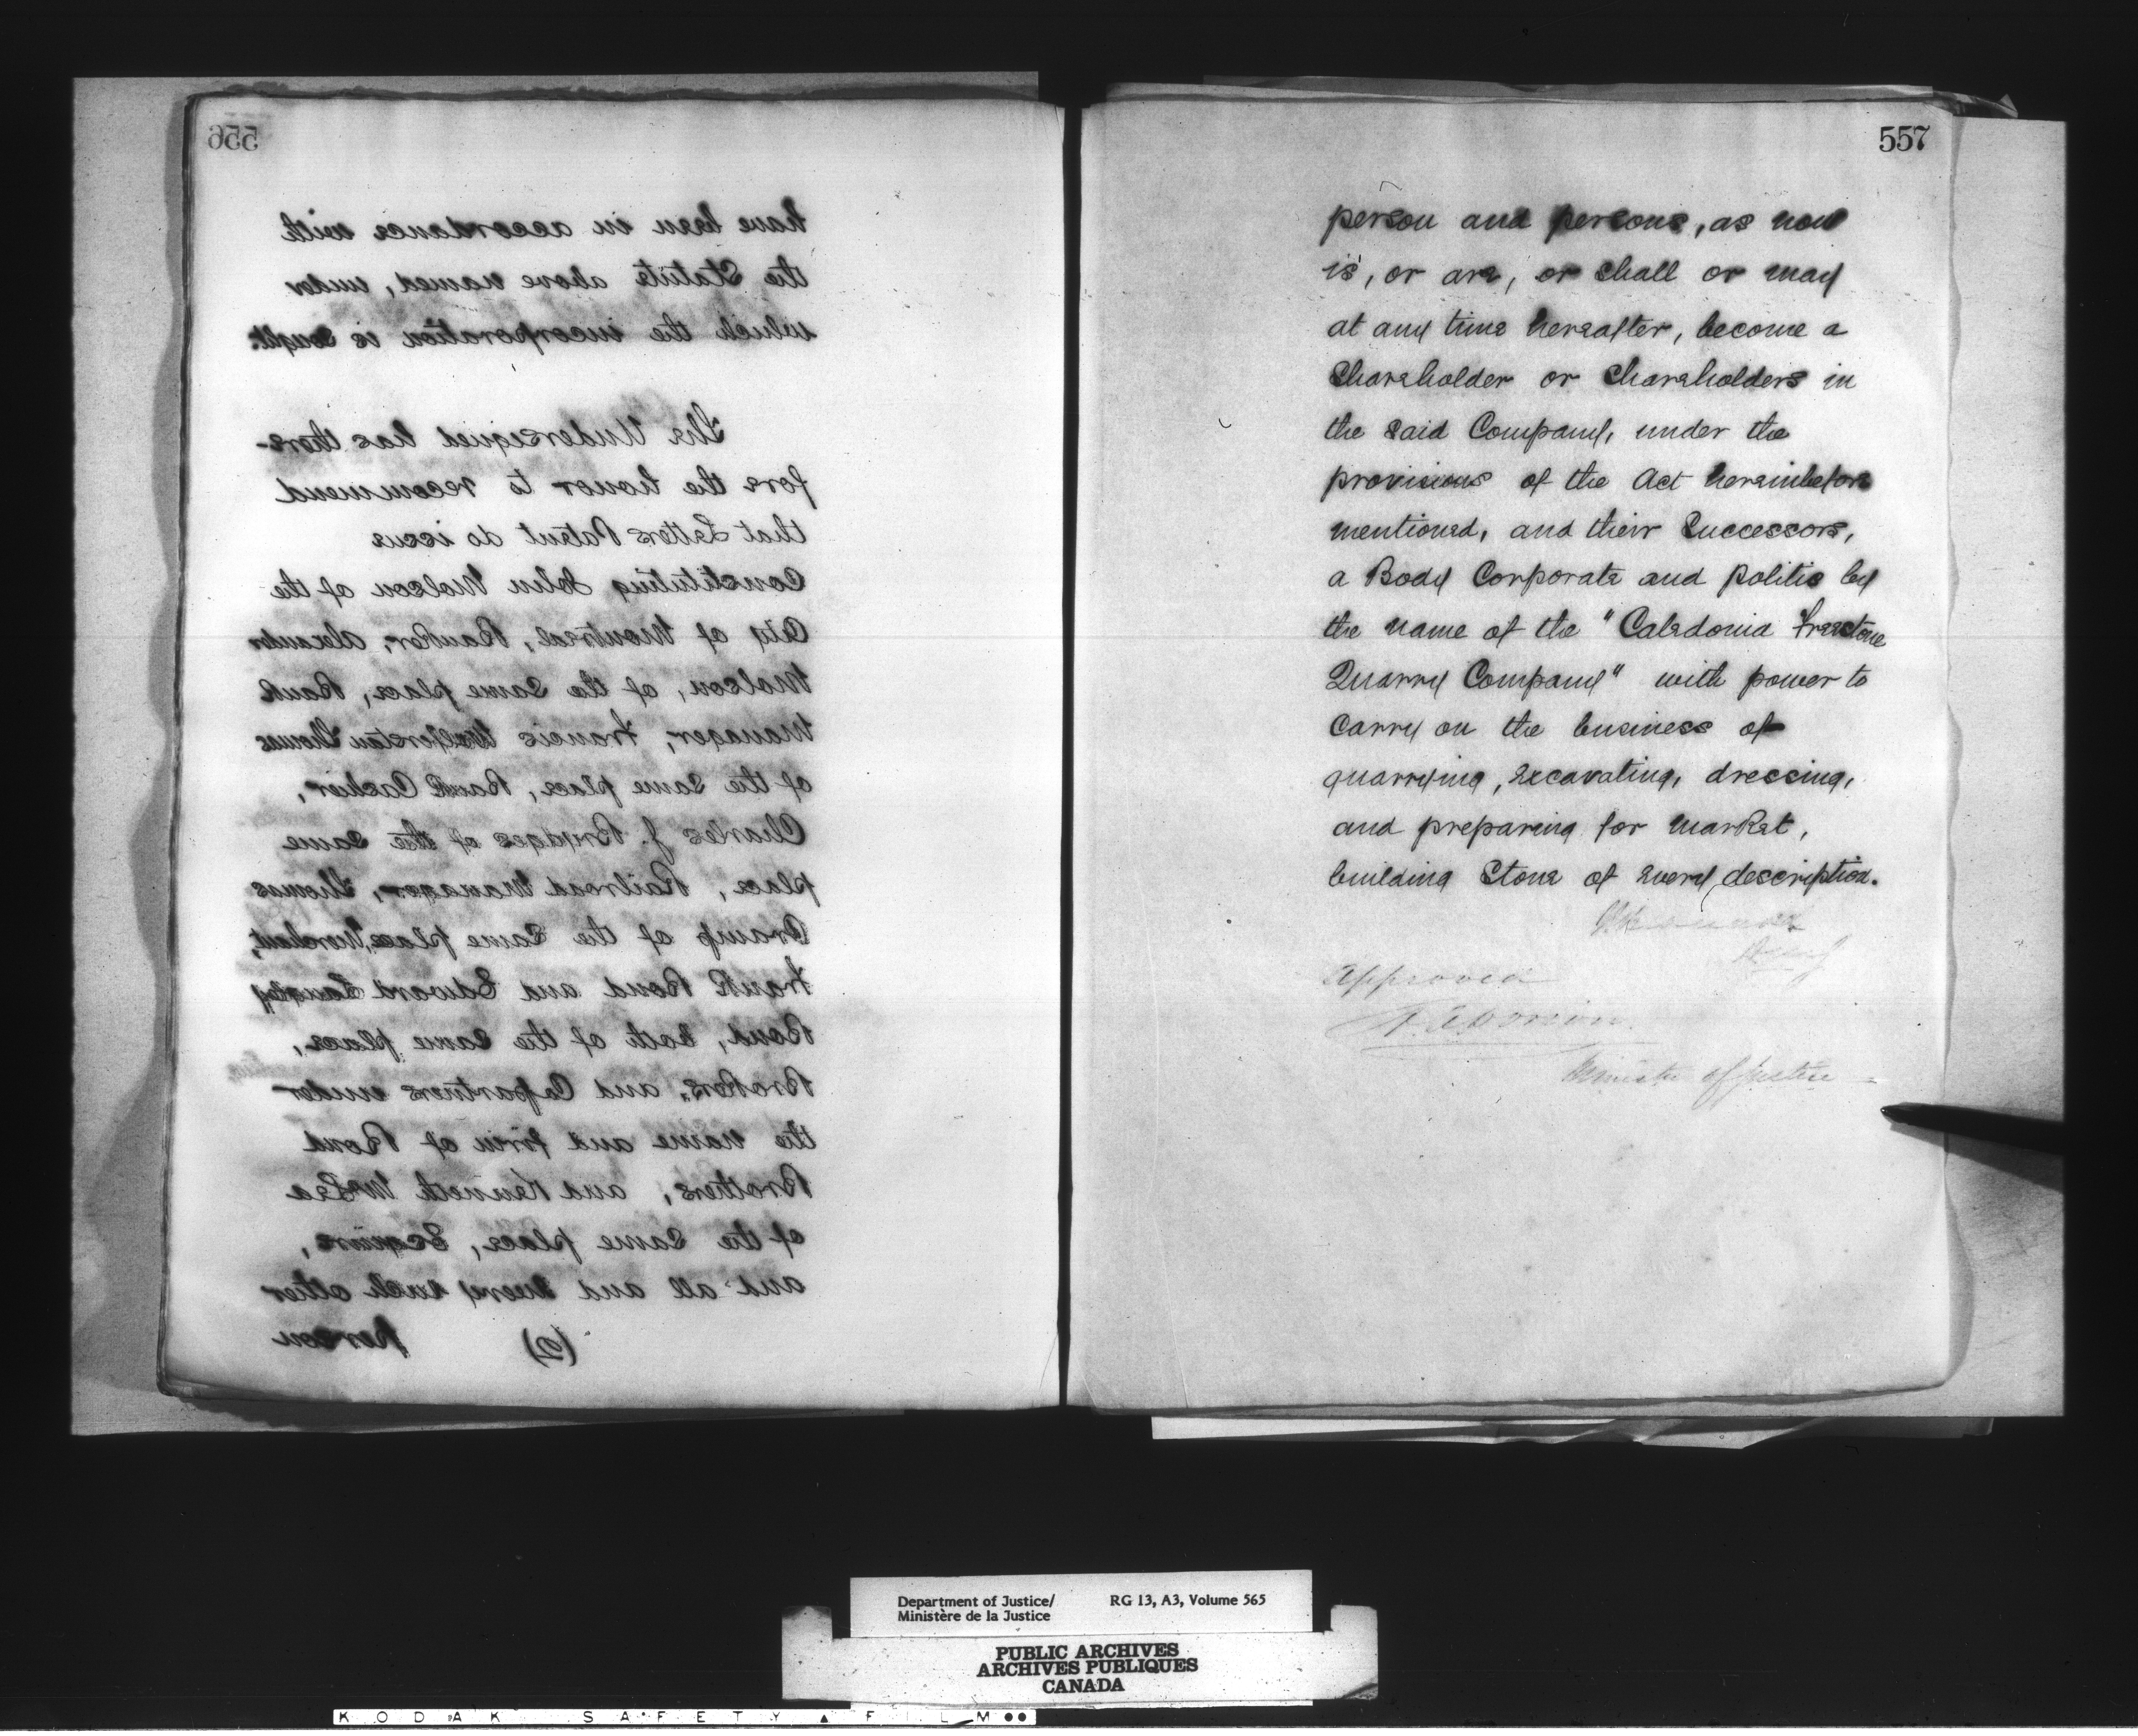 556
have been in accordance with
the Statute above named, under
which the incorporation is sought.
The Undersigned has there-
fore the honor to recommend
that Letters Patent do issue
Constituting John Molson of the
City of Montreal, Banker, Alexander
Molson, of the same place, Bank
Manager, Francis Wolferstan Thomas
of the same place, Bank Cashier,
Charles J. Brydges of the same
place, Railroad Manager, Thomas
Cramp of the same place, Merchant,
Frank Bond and Edward Langley
Bond, both of the same place,
Brokers, and Copartners under
the name and firm of Bond
Brothers, and Kenneth McLea
of the same place, Esquire,
and all and every such other
(2) person
557
person and persons, as now
is, or are, or shall or may
at any time hereafter, become a
Shareholder or Shareholders in
the said Company, under the
provisions of the Act hereinbefore
mentioned, and their Successors,
a Body Corporate and politic by
the name of the "Caledonia Freestone
Quarry Company" with power to
carry on the business of
quarrying, excavating, dressing,
and preparing for market,
building stone of every description.
Approved
A. A. Dorion
Minister of Justice
Department of Justice/ RG 13, A3, Volume 565
Ministère de la Justice
PUBLIC ARCHIVES
ARCHIVES PUBLIQUES
CANADA
KODAK SAFETY FILM